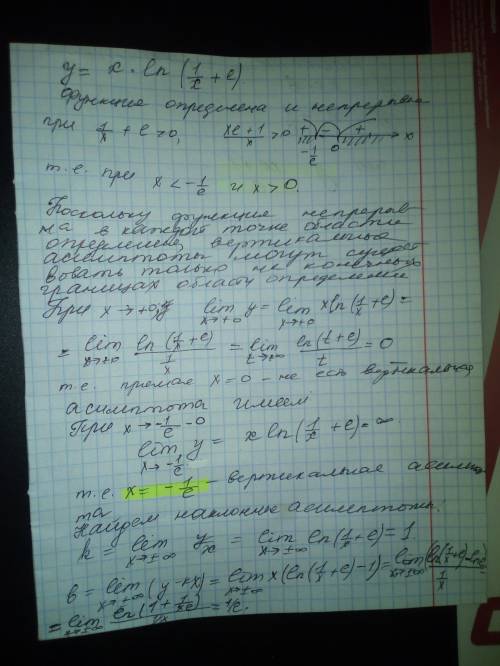 y = x · ln (1/x + e)
Функция определена и непрерывна
при 1/x + e > 0, (xe + 1)/x > 0 + − + x
-1/e 0
т.е. при x < -1/e и x > 0.
Поскольку функция непрерыв-
на в каждой точке области
определения, вертикальные
асимптоты могут сущест
вовать только на конечных
границах области определения
При x → +0 lim y = lim x ln (1/x + e) =
x→+0 x→+0
= lim ln (1/x + e) / (1/x) = lim ln (t + e) / t = 0
x→+0 t→+∞
т.е. прямая x = 0 – не есть вертикальная
асимптота
При x → -1/e - 0 имеем
lim y = x ln (1/x + e) = ∞
x → -1/e
т.е. x = -1/e – вертикальная асимпто
та
Найдем наклонные асимптоты:
k = lim y/x = lim ln (1/x + e) = 1
x→±∞ x→±∞
b = lim (y - kx) = lim x (ln (1/x + e) - 1) = lim (ln (1/x + e) - ln e) / (1/x)
x→±∞ x→±∞ x→±∞
= lim ln (1 + 1/xe) / (1/x) = 1/e.
x→±∞